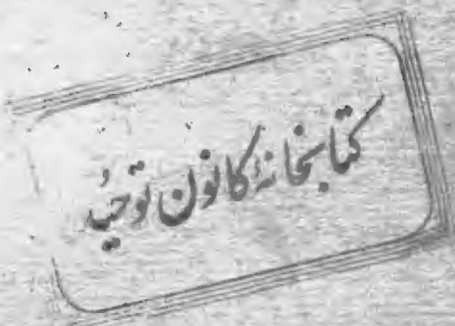 کتابخانهٔ کانون توحید